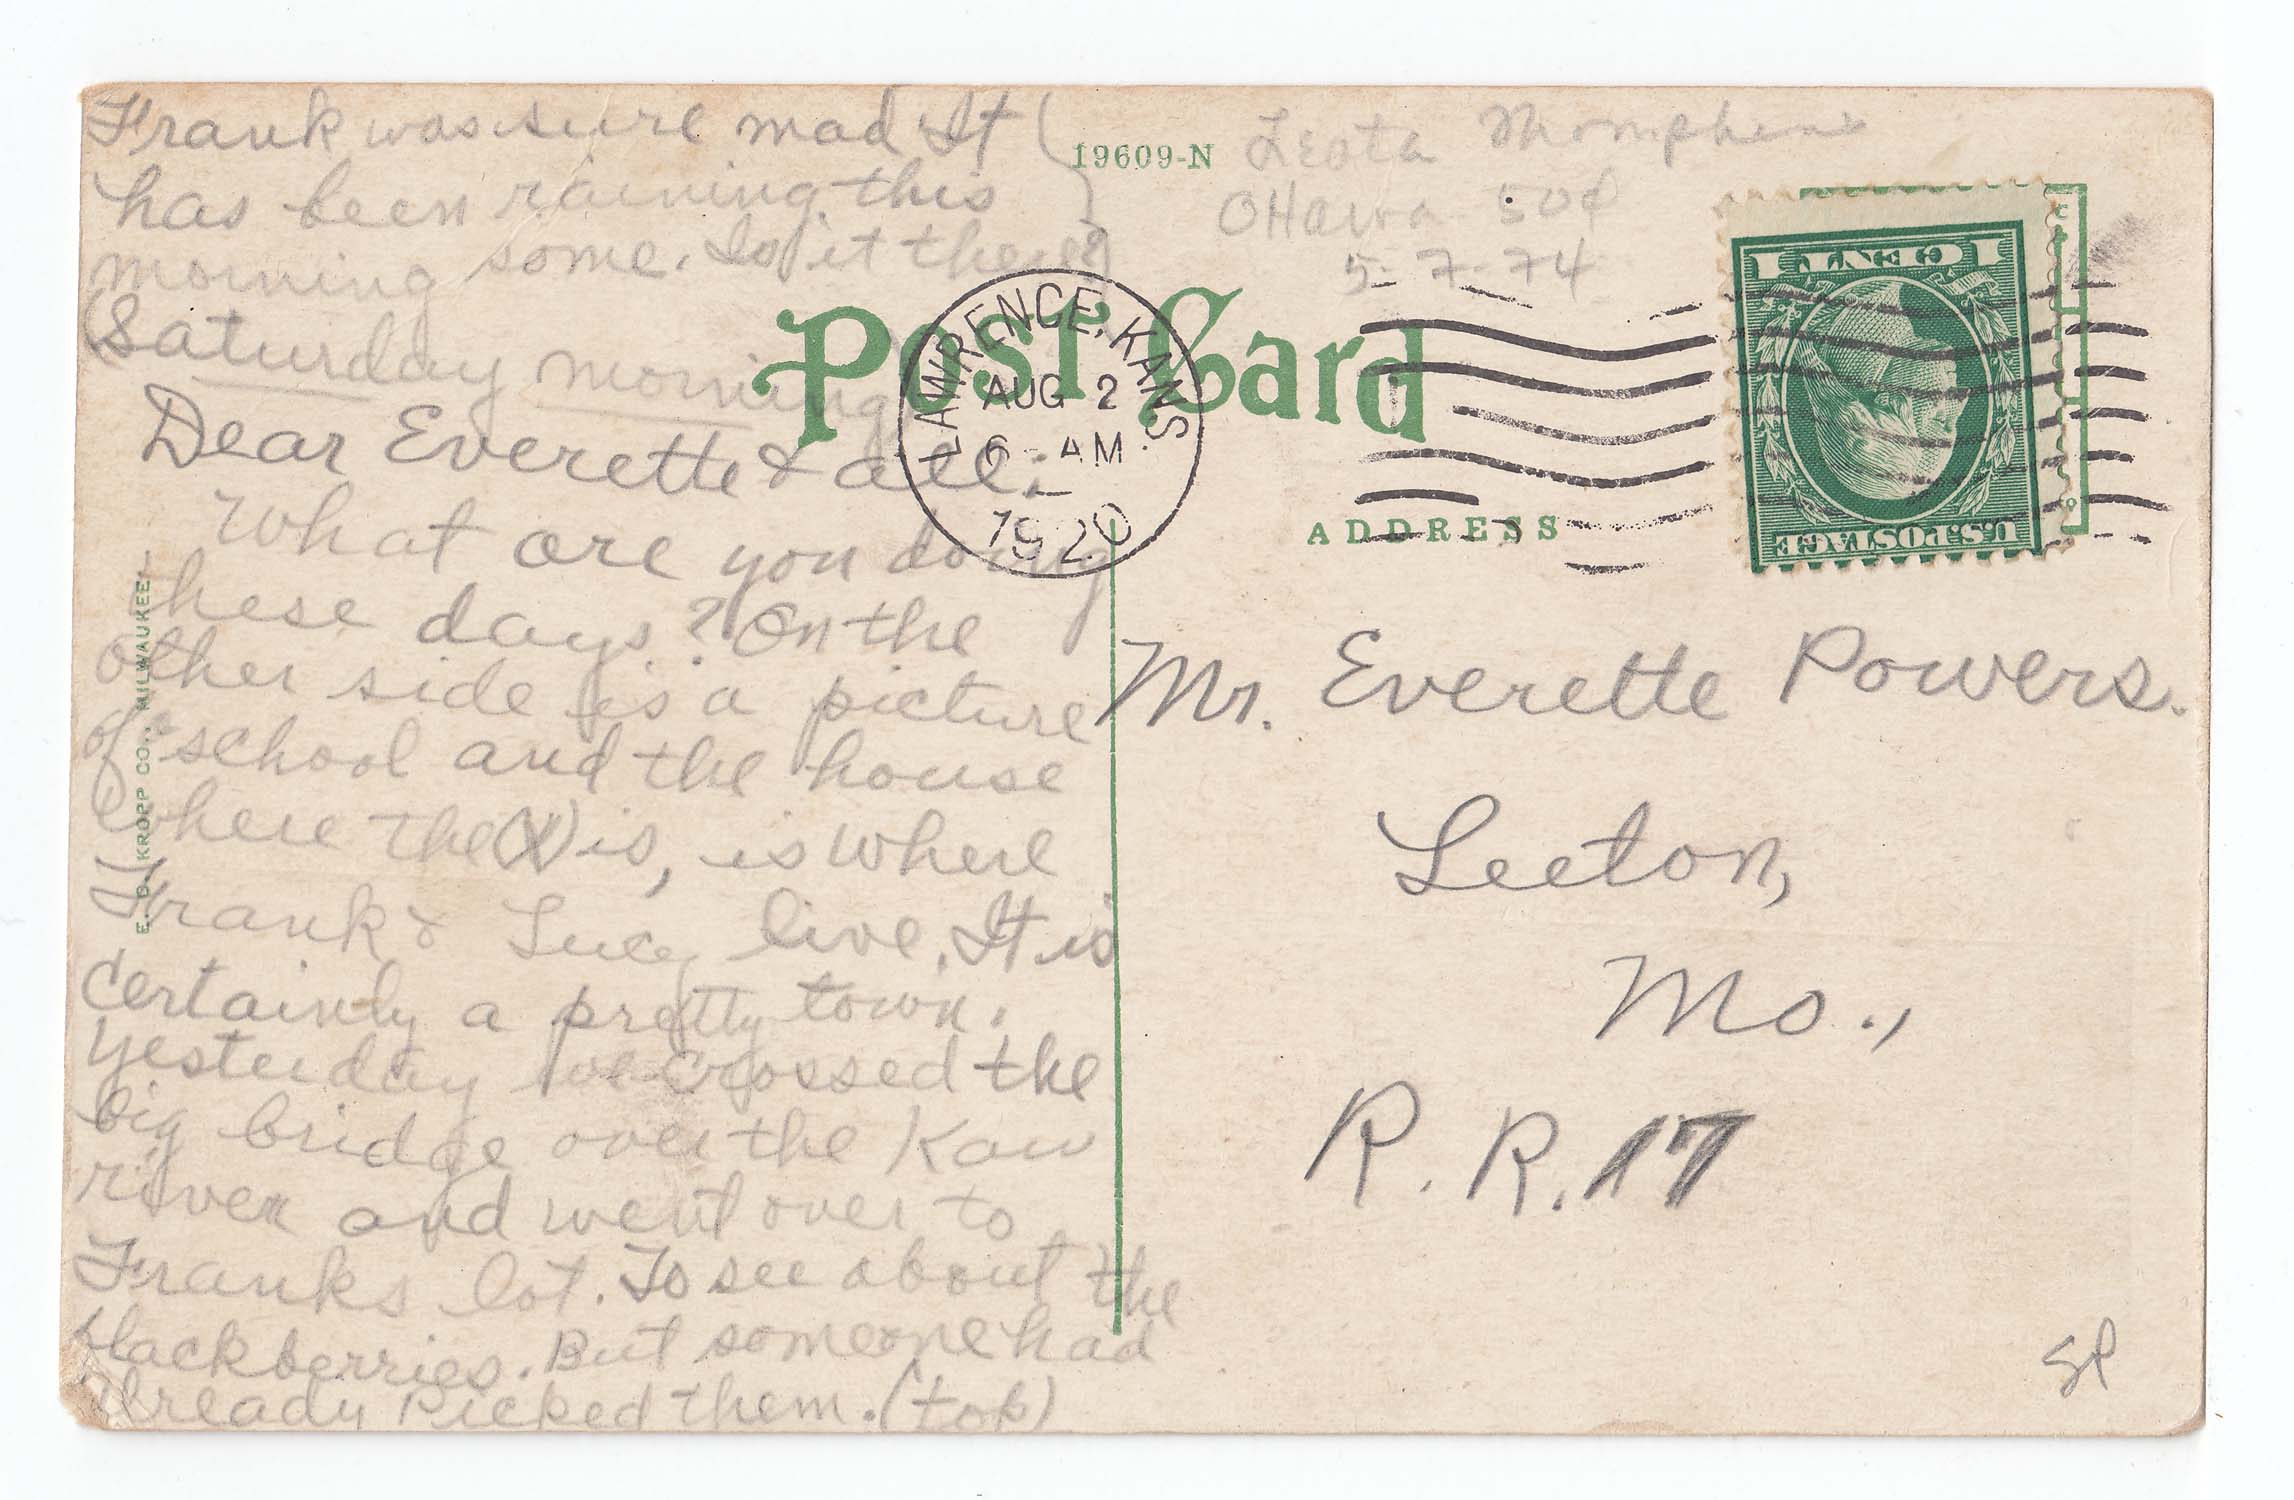 Frank was sure mad It
has been raining this
morning some. Is it there?
(Saturday morning
Dear Everette & all:
What are you doing
these days? On the
other side is a picture
of school and the house
where the (X) is, is where
Frank & Lucy live. It is
certainly a pretty town.
Yesterday we crossed the
big bridge over the Kaw
river and went over to
Franks lot. To see about the
blackberries. But someone had
already picked them. (top)
E. C. KROPP CO., MILWAUKEE.
19609-N
Leota
Ottawa 50¢
5-7-74
Post Card
LAWRENCE, KANS.
AUG 2
6 - AM
1920
1 CENT 1
U.S. POSTAGE
ADDRESS
Mr. Everette Powers.
Leeton,
Mo.,
R. R. 17